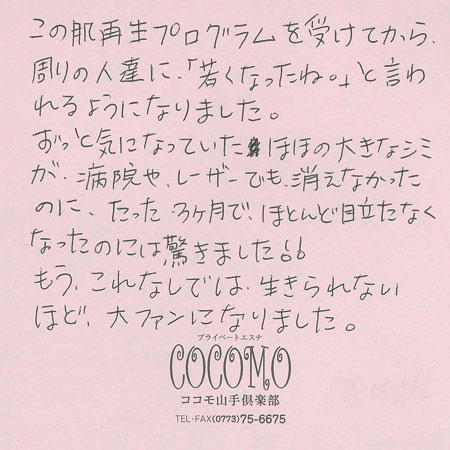 この肌再生プログラムを受けてから、
周りの人達に、「若くなったね。」と言わ
れるようになりました。
ずっと気になっていた ほほの大きなシミ
が、病院や、レーザーでも、消えなかった
のに、たった3ヶ月で、ほとんど目立たなく
なったのには驚きました!!
もう、これなしでは、生きられない
ほど、大ファンになりました。
プライベートエステ
COCOMO
ココモ山手倶楽部
TEL・FAX(0773)75-6675